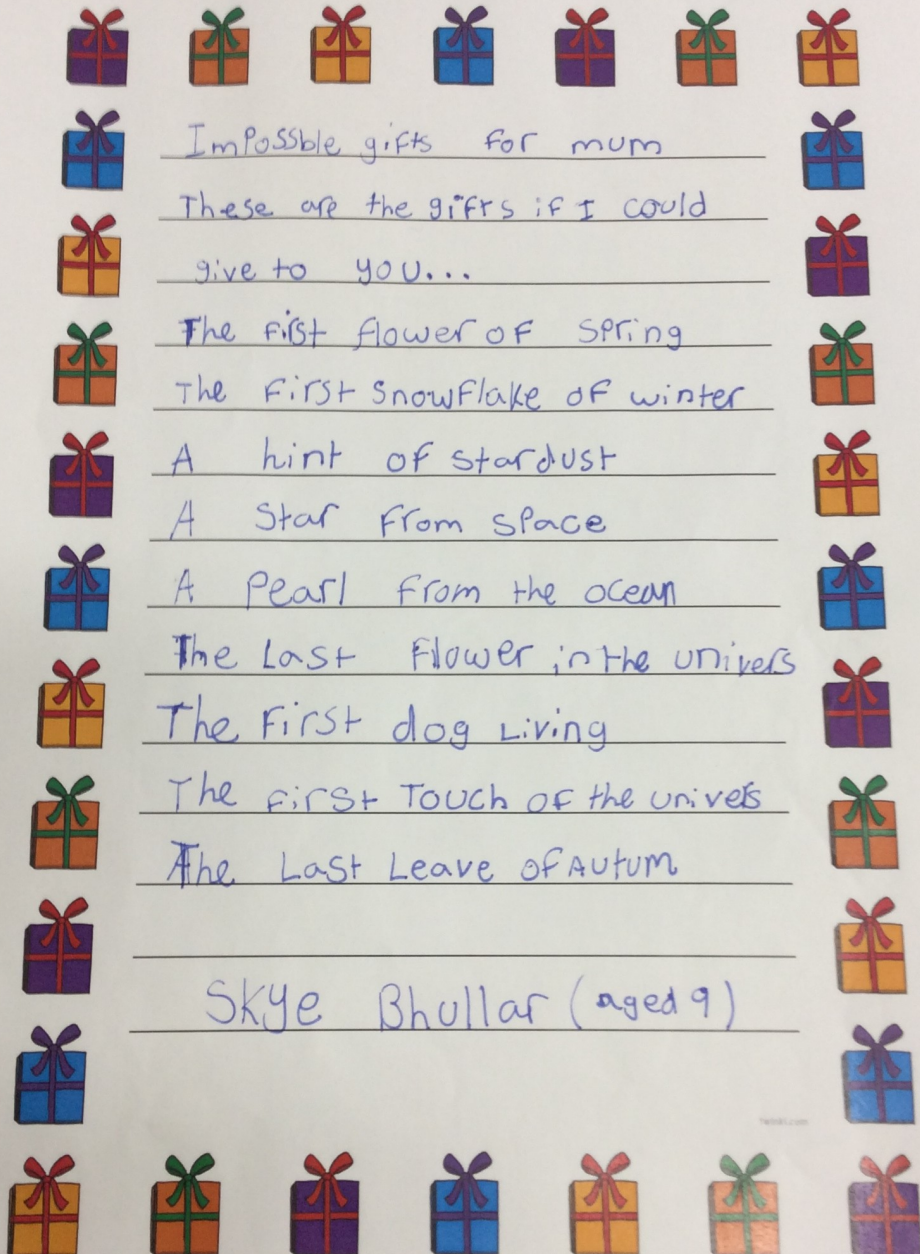 Impossble gifts for mum
These are the gifts if I could
give to you...
The first flower of spring
The first snowflake of winter
A hint of stardust
A star from space
A pearl from the ocean
The Last flower in the univers
The first dog Living
The first Touch of the univers
The Last Leave of Autum
Skye Bhullar (aged 9)